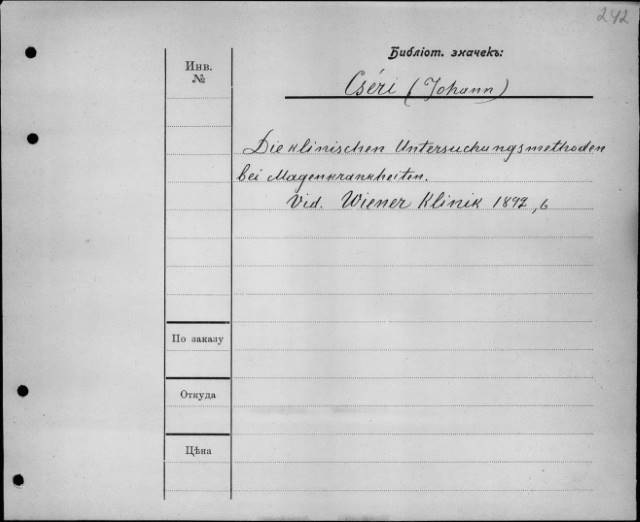 242
Библіот. значекъ:
Инв.
№
Cséri (Johann)
Die klinischen Untersuchungsmethoden
bei Magenkrankheiten.
Vid. Wiener Klinik 1892, 6
По заказу
Откуда
Цѣна